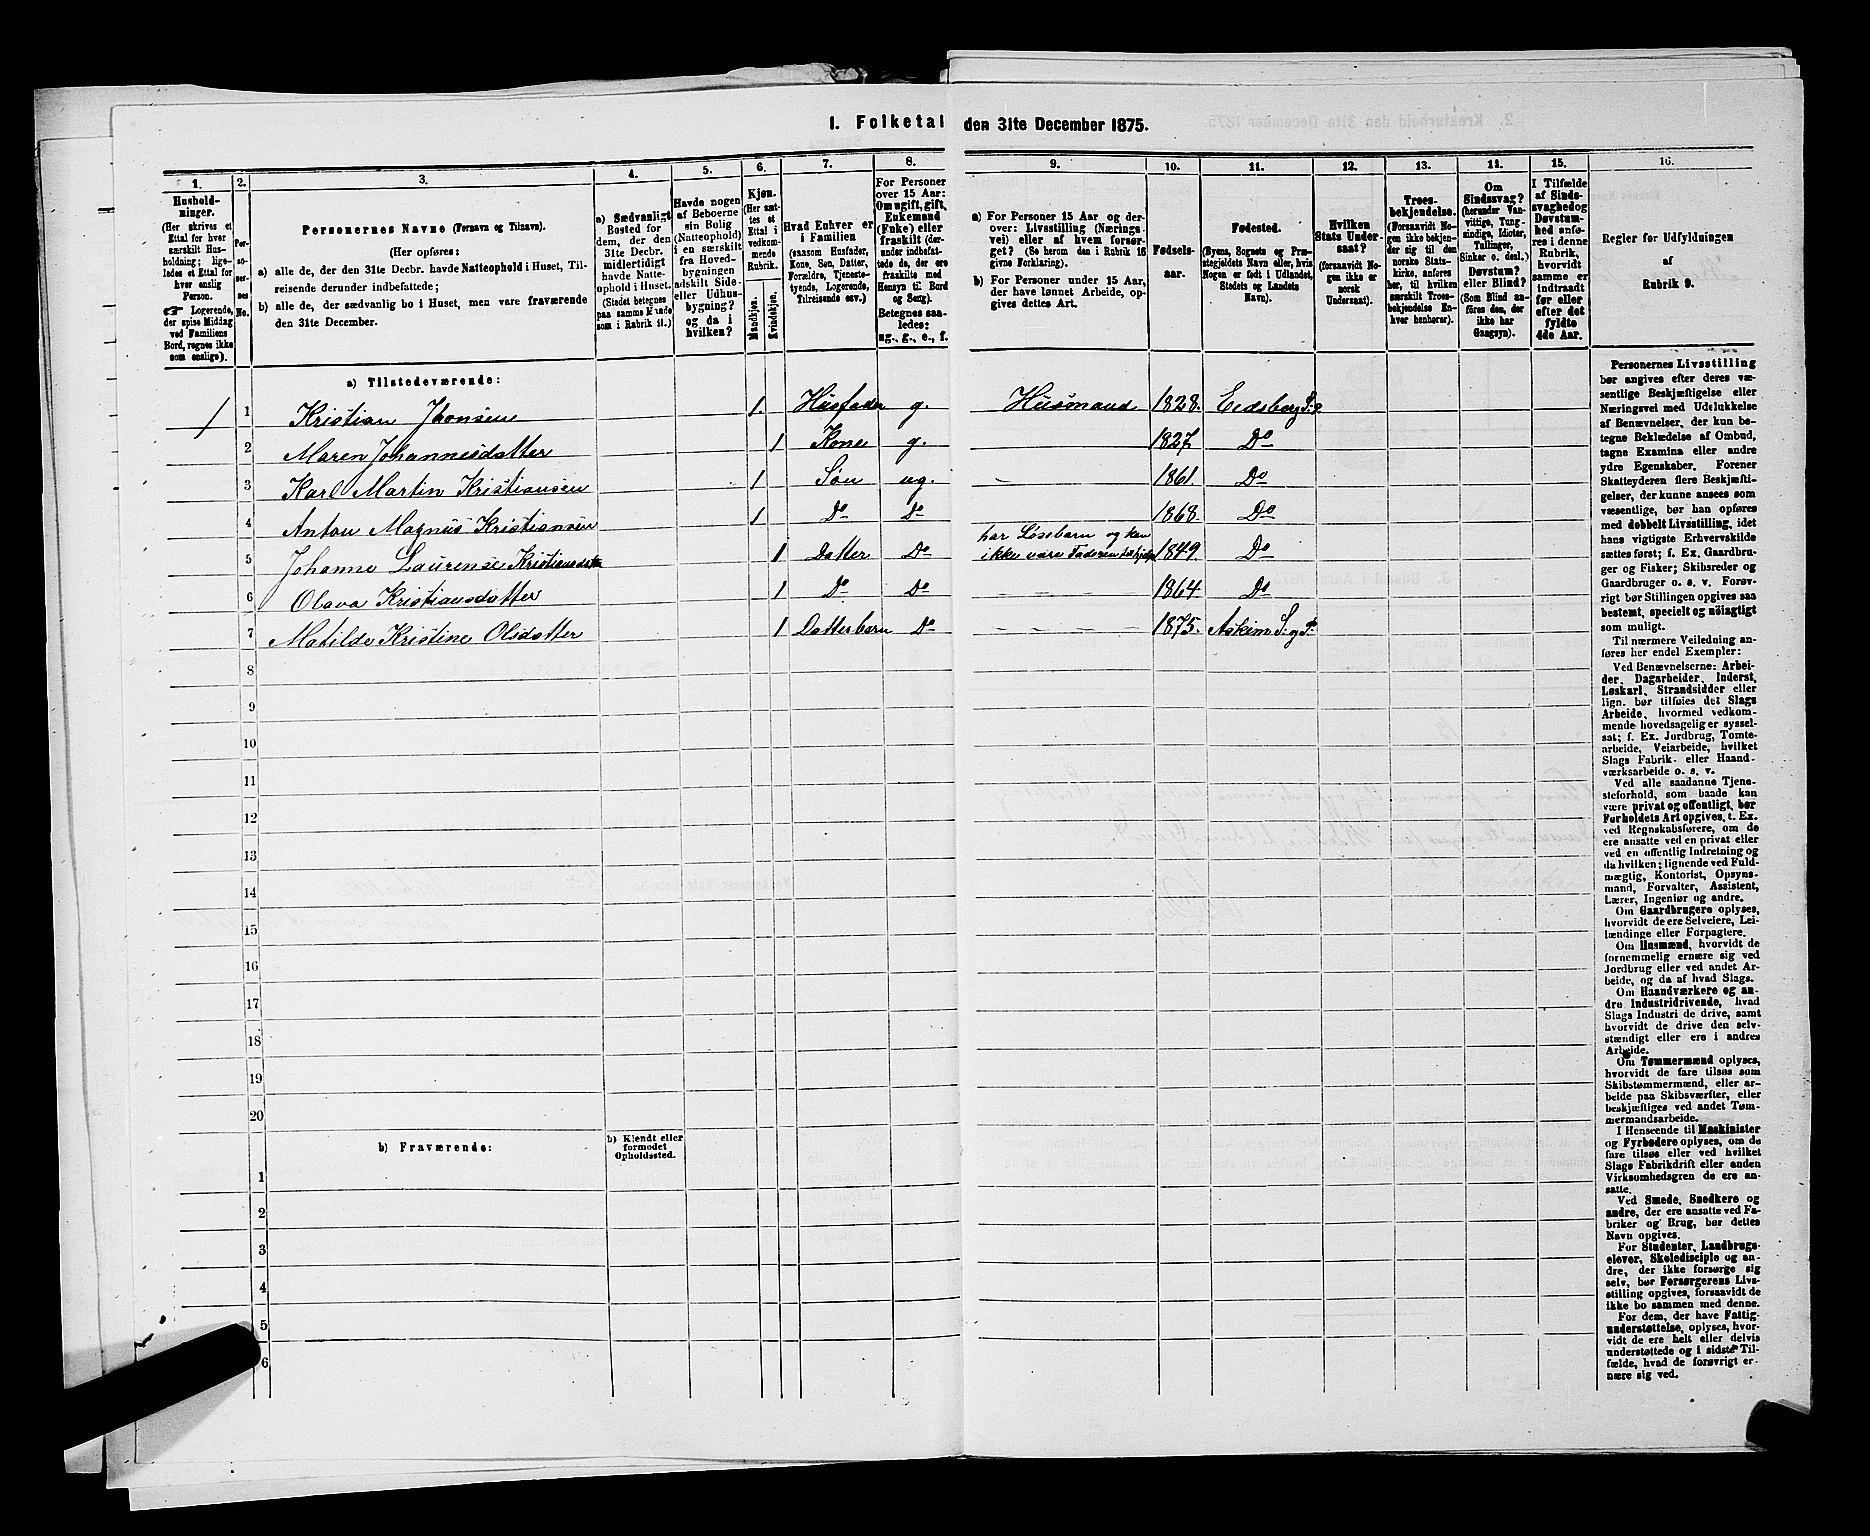 1. Folketal den 31te December 1875.
1.
2.
3.
4.
5.
6.
7.
8.
9.
10.
11.
12.
13.
14.
15.
16.
Hushold-
ninger.
(Her skrives et
Ettal for hver
særskilt Hus-
holdning; lige-
ledes et Ettal for
hver enslig
Person.
☛ Logerende,
der spise Middag
ved Familiens
Bord, regnes ikke
som enslige).
Per-
so-
ner-
nes
No.
Personernes Navne (Fornavn og Tilnavn).
(Her opføres:
a) alle de, der den 31te Decbr. havde Natteophold i Huset, Til-
reisende derunder indbefattede;
b) alle de, der sædvanlig bo i Huset, men vare fraværende
den 31te December.
a) Sædvanligt
Bosted for
dem, der den
31te Decbr.
midlertidigt
havde Natte-
ophold i Huset.
(Stedet betegnes
paa samme Maade
som i Rubrik 11.)
Havde nogen
af Beboerne
sin Bolig
(Natteophold)
i en særskilt
fra Hoved-
bygningen
adskilt Side-
eller Udhus-
bygning?
og da i
hvilken?
Kjøn.
(Her sæt-
tes et
Ettal i
vedkom-
mende
Rubrik.
Mandkjøn.
Kvindekjøn.
Hvad Enhver er
i Familien
(saasom Husfader,
Kone, Søn, Datter,
Forældre, Tjeneste-
tyende, Logerende,
Tilreisende osv.)
For Personer
over 15 Aar:
Om ugift, gift,
Enkemand
(Enke) eller
fraskilt (der-
under indbefat-
tede de, der ere
fraskilte med
Hensyn til Bord
og Seng).
Betegnes saa-
ledes:
ug., g., e., f.
a) For Personer 15 Aar og der-
over: Livsstilling (Nærings-
vei) eller af hvem forsør-
get? (Se herom den i Rubrik 16
givne Forklaring).
b) For Personer under 15 Aar,
der have lønnet Arbeide, op-
gives dettes Art.
Fødsels-
aar.
Fødested.
(Byens, Sognets og Præ-
stegjeldets Navn eller, hvis
Nogen er født i Udlandet,
Stedets og Landets
Navn).
Hvilken
Stats Under-
saat?
(forsaavidt No-
gen ikke er
norsk
Undersaat).
Troes-
bekjendelse.
(Forsaavidt No-
gen ikke bekjen-
der sig til den
norske Stats-
kirke, anføres
her, til hvilken
særskilt Troes-
bekjendelse En-
hver henhører).
Om
Sindssvag?
(herunder Van-
vittige, Tung-
sindige, Idioter,
Tullinger,
Sinker o. desl.)
Døvstum?
eller Blind?
(Som Blind an-
føres den, der
ikke har
Gangsyn).
I Tilfælde
af Sinds-
svaghed og
Døvstum-
hed anfø-
res i denne
Rubrik,
hvorvidt
samme er
indtraadt
før eller
efter det
fyldte
4de Aar.
Regler for Udfyldningen
af
Rubrik 9.
a) Tilstedeværende:
1 1 Kristian Jhonsen 1. Husfader g. Husmand 1828. Eidsberg P.g.
2 Maren Johannesdatter 1 Kone g. 1827 Do
3 Karl Martin Kristiansen 1 Søn ug. - 1861. Do
4 Anton Magnus Kristiansen 1 Do Do 1868. Do
har Løsebarn og kan
5 Johanne Laurense Kristiansdatter 1 Datter Do ikke være Faderen 1849. Do
6 Olava Kristiansdatter 1 Do Do 1864 Do
7 Matilde Kristine Olsdatter 1 Datterbarn Do 1875. Askim S. og P.
8
9
10
11
12
13
14
15
16
17
18
19
20
b) Fraværende:
b) Kjendt eller
formodet
Opholdssted.
1
2
3
4
5
6
Personernes Livsstilling
bør angives efter deres væ-
sentlige Beskjæftigelse eller
Næringsvei med Udelukkelse
af Benævnelser, der kun be-
tegne Beklædelse af Ombud,
tagne Examina eller andre
ydre Egenskaber. Forener
Skatteyderen flere Beskjæfti-
gelser, der kunne ansees som
væsentlige, bør han opføres
med dobbelt Livsstilling, idet
hans vigtigste Erhvervskilde
sættes først; f. Ex. Gaardbru-
ger og Fisker; Skibsreder og
Gaardbruger o. s. v. Forøv-
rigt bør Stillingen opgives saa
bestemt, specielt og nøiagtigt
som muligt.
Til nærmere Veiledning an-
føres her endel Exempler:
Ved Benævnelserne: Arbei-
der, Dagarbeider, Inderst,
Løskarl, Strandsidder eller
lign. bør tilføies det Slags
Arbeide, hvormed vedkom-
mende hovedsagelig er syssel-
sat; f. Ex. Jordbrug, Tomte-
arbeide, Veiarbeide, hvilket
Slags Fabrik- eller Haand-
værksarbeide o. s. v.
Ved alle saadanne Tjene-
steforhold, som baade kan
være privat og offentligt, bør
Forholdets Art opgives, t. Ex.
ved Regnskabsførere, om de
ere ansatte ved en privat eller
ved en offentlig Indretning og
da hvilken; lignende ved Fuld-
mægtig, Kontorist, Opsyns-
mand, Forvalter, Assistent,
Lærer, Ingeniør og andre.
Om Gaardbrugere oplyses,
hvorvidt de ere Selveiere, Lei-
lændinge eller Forpagtere.
Om Husmænd, hvorvidt de
fornemmelig ernære sig ved
Jordbrug eller ved andet Ar-
beide, og da af hvad Slags.
Om Haandværkere og an-
dre Industridrivende, hvad
Slags Industri de drive, samt
hvorvidt de drive den selv-
stændigt eller ere i andres
Arbeide.
Om Tømmermænd oplyses,
hvorvidt de fare tilsøs som
Skibstømmermænd, eller ar-
beide paa Skibsværfter, eller
beskjæftiges ved andet Tøm-
mermandsarbeide.
I Henseende til Maskinister
og Fyrbødere oplyses, om de
fare tilsøs eller ved hvilket
Slags Fabrikdrift eller anden
Virksomhedsgren de ere an-
satte.
Ved Smede, Snedkere og
andre, der ere ansatte ved Fa-
briker og Brug, bør dettes
Navn opgives.
For Studenter, Landbrugs-
elever, Skoledisciple og an-
dre, der ikke forsørge sig
selv, bør Forsørgerens Livs-
stilling opgives, forsaavidt de
ikke bo sammen med denne.
For dem, der have Fattig-
understøttelse, oplyses, hvor-
vidt de ere helt eller delvis
understøttede og i sidste Til-
fælde, hvad de forøvrigt er-
nære sig ved.